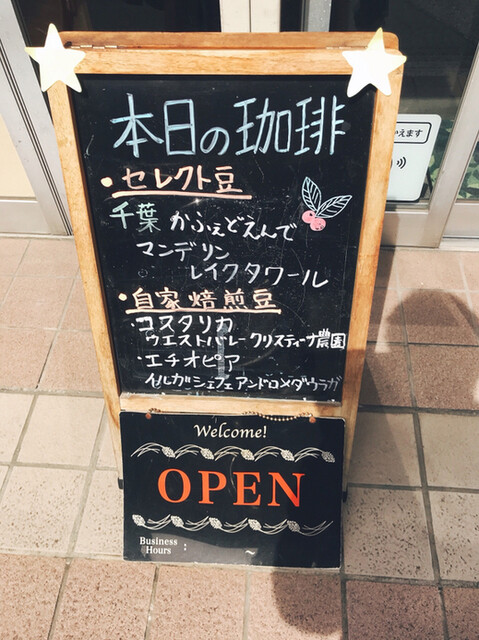 本日の珈琲
・セレクト豆
千葉 かふぇどえんで
マンデリン
レイクタワール
・自家焙煎豆
・コスタリカ
ウエストバレークリスティーナ農園
・エチオピア
イルガシェフェアンドロメダウラガ
Welcome!
OPEN
Business
Hours : ~
かえます